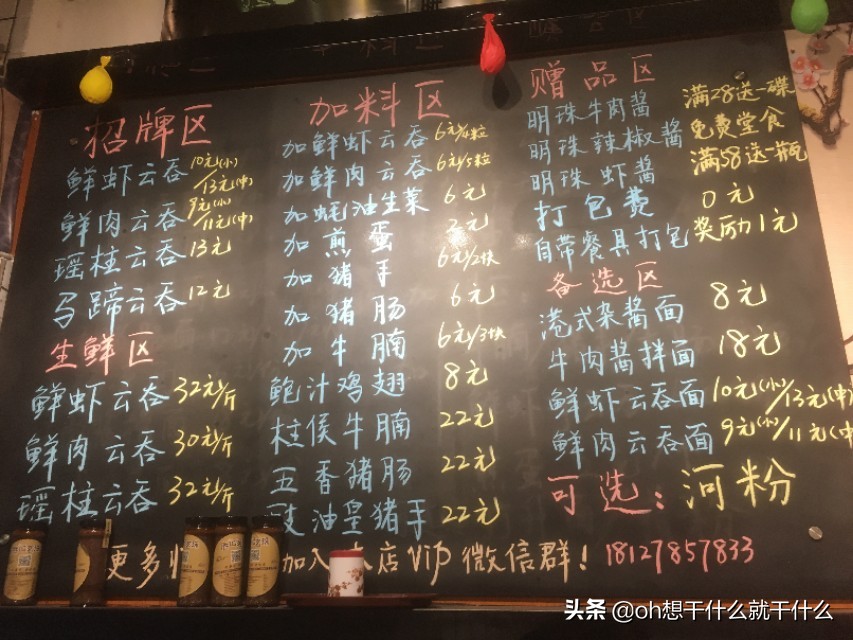 招牌区
鲜虾云吞 10元(小)/13元(中)
鲜肉云吞 9元(小)/11元(中)
瑶柱云吞 13元
马蹄云吞 12元
生鲜区
鲜虾云吞 32元/斤
鲜肉云吞 30元/斤
瑶柱云吞 32元/斤
加料区
加鲜虾云吞 6元/4粒
加鲜肉云吞 6元/5粒
加蚝油生菜 6元
加煎蛋 2元
加猪手 6元/2块
加猪肠 6元
加牛腩 6元/3块
鲍汁鸡翅 8元
柱侯牛腩 22元
五香猪肠 22元
豉油皇猪手 22元
赠品区
明珠牛肉酱 满28送一碟
明珠辣椒酱 免费堂食
明珠虾酱 满58送一瓶
打包费 0元
自带餐具打包 奖励1元
备选区
港式杂酱面 8元
牛肉酱拌面 18元
鲜虾云吞面 10元(小)/13元(中)
鲜肉云吞面 9元(小)/11元(中
可选:河粉
更多 加入 店VIP微信群! 18127857833
头条 @oh想干什么就干什么